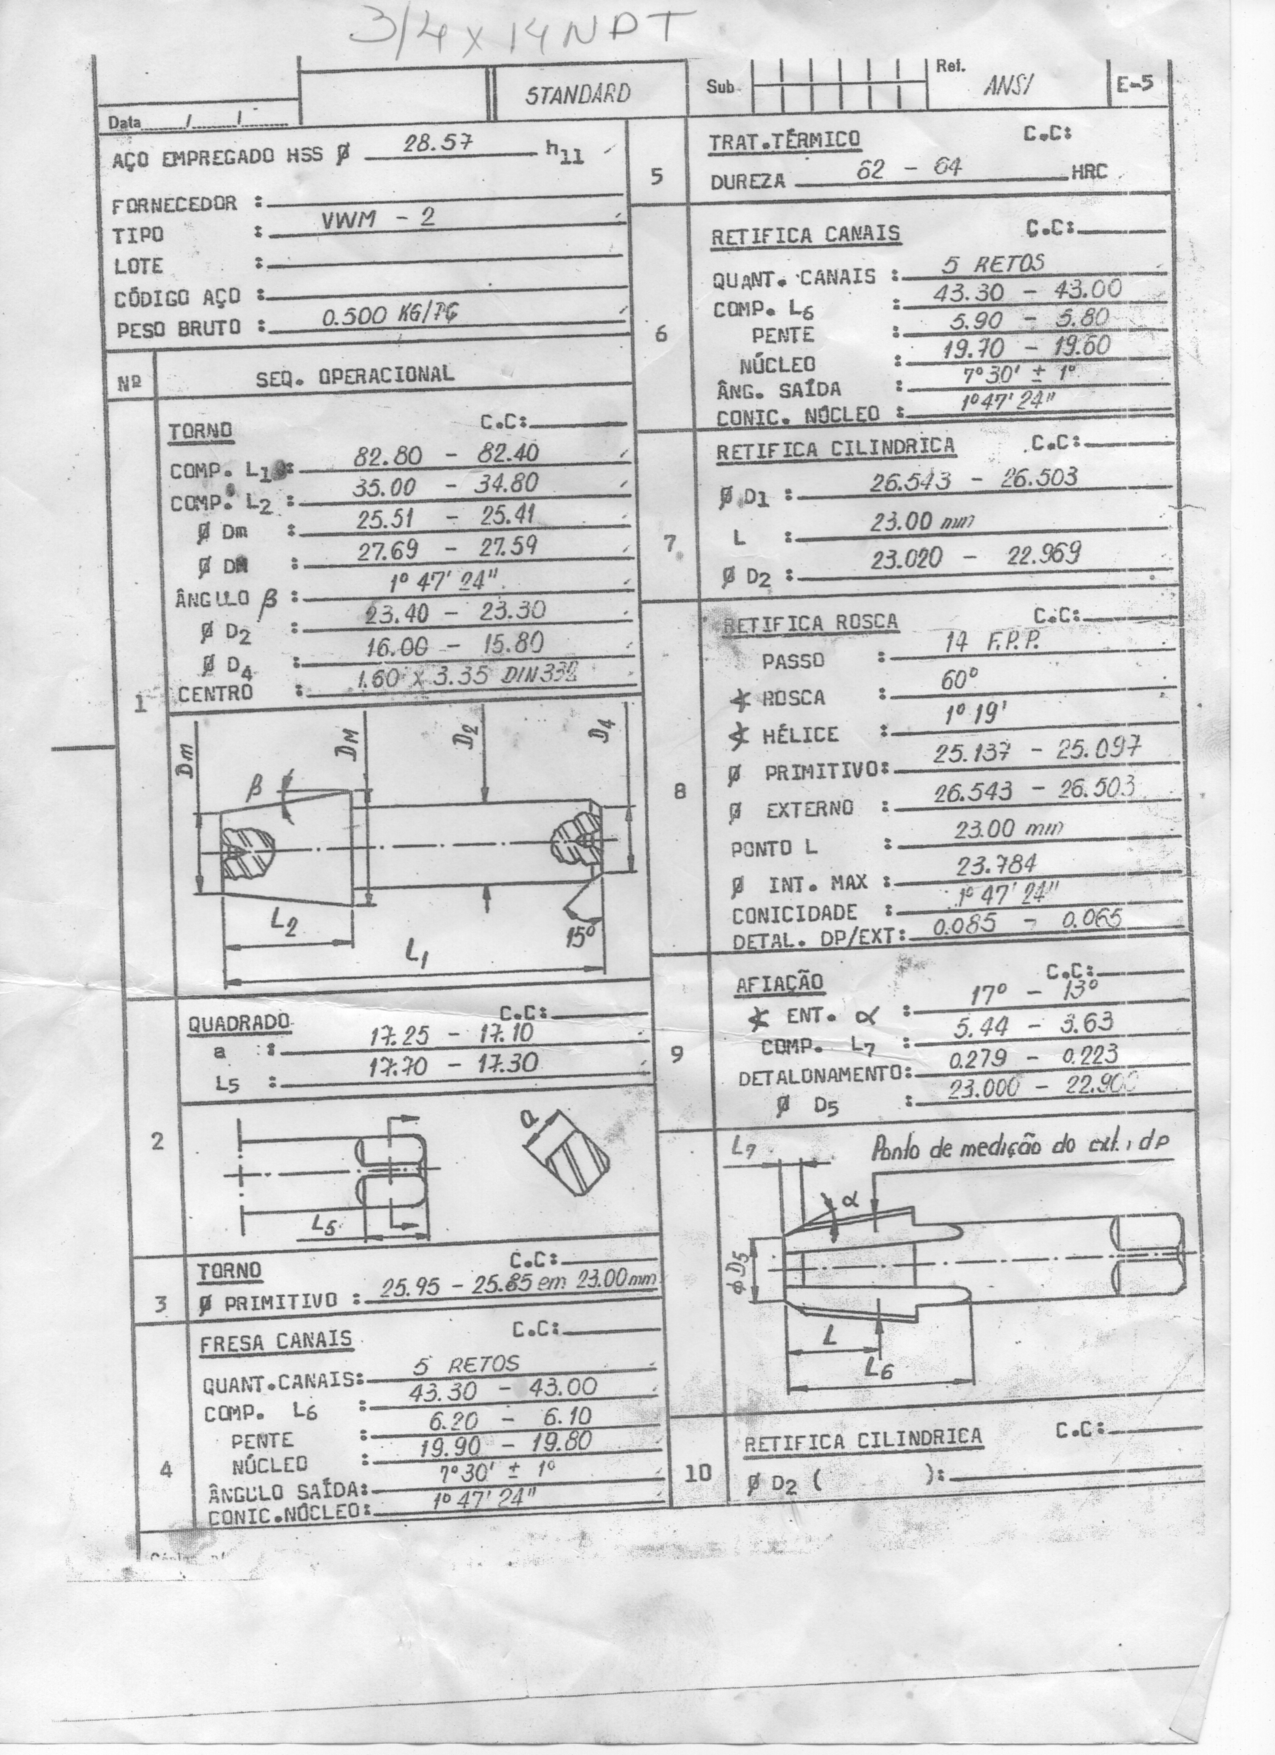 3/4 x 14 NPT
STANDARD
Sub.
Ref.
ANSI
E-5
Data ___/___/___
AÇO EMPREGADO HSS Ø 28.57 h11
FORNECEDOR :
TIPO : VWM - 2
LOTE :
CÓDIGO AÇO :
PESO BRUTO : 0.500 KG/PÇ
Nº SEQ. OPERACIONAL
1
TORNO C.C:
COMP. L1 : 82.80 - 82.40
COMP. L2 : 35.00 - 34.80
Ø Dm : 25.51 - 25.41
Ø DM : 27.69 - 27.59
ÂNGULO β : 1º 47' 24"
Ø D2 : 23.40 - 23.30
Ø D4 : 16.00 - 15.80
CENTRO : 1.60 x 3.35 DIN 332
Dm
β
DM
D2
D4
L2
L1
15º
2
QUADRADO C.C:
a : 17.25 - 17.10
L5 : 17.70 - 17.30
a
L5
3
TORNO C.C:
Ø PRIMITIVO : 25.95 - 25.85 em 23.00 mm
4
FRESA CANAIS C.C:
QUANT.CANAIS: 5 RETOS
COMP. L6 : 43.30 - 43.00
PENTE : 6.20 - 6.10
NÚCLEO : 19.90 - 19.80
ÂNGULO SAÍDA: 7º30' ± 1º
CONIC.NÚCLEO: 1º 47' 24"
5
TRAT.TÉRMICO C.C:
DUREZA 62 - 64 HRC
6
RETIFICA CANAIS C.C:
QUANT. CANAIS : 5 RETOS
COMP. L6 : 43.30 - 43.00
PENTE : 5.90 - 5.80
NÚCLEO : 19.70 - 19.60
ÂNG. SAÍDA : 7º30' ± 1º
CONIC. NÚCLEO : 1º47' 24"
7
RETIFICA CILINDRICA C.C:
Ø D1 : 26.543 - 26.503
L : 23.00 mm
Ø D2 : 23.020 - 22.969
8
RETIFICA ROSCA C.C:
PASSO : 14 F.P.P.
∢ ROSCA : 60º
∢ HÉLICE : 1º 19'
Ø PRIMITIVO: 25.137 - 25.097
Ø EXTERNO : 26.543 - 26.503
PONTO L : 23.00 mm
Ø INT. MAX : 23.784
CONICIDADE : 1º 47' 24"
DETAL. DP/EXT: 0.085 - 0.065
9
AFIAÇÃO C.C:
∢ ENT. α : 17º - 13º
COMP. L7 : 5.44 - 3.63
DETALONAMENTO: 0.279 - 0.223
Ø D5 : 23.000 - 22.900
L7
Ponto de medição do ext. dp
α
Ø D5
L
L6
10
RETIFICA CILINDRICA C.C:
Ø D2 ( ):